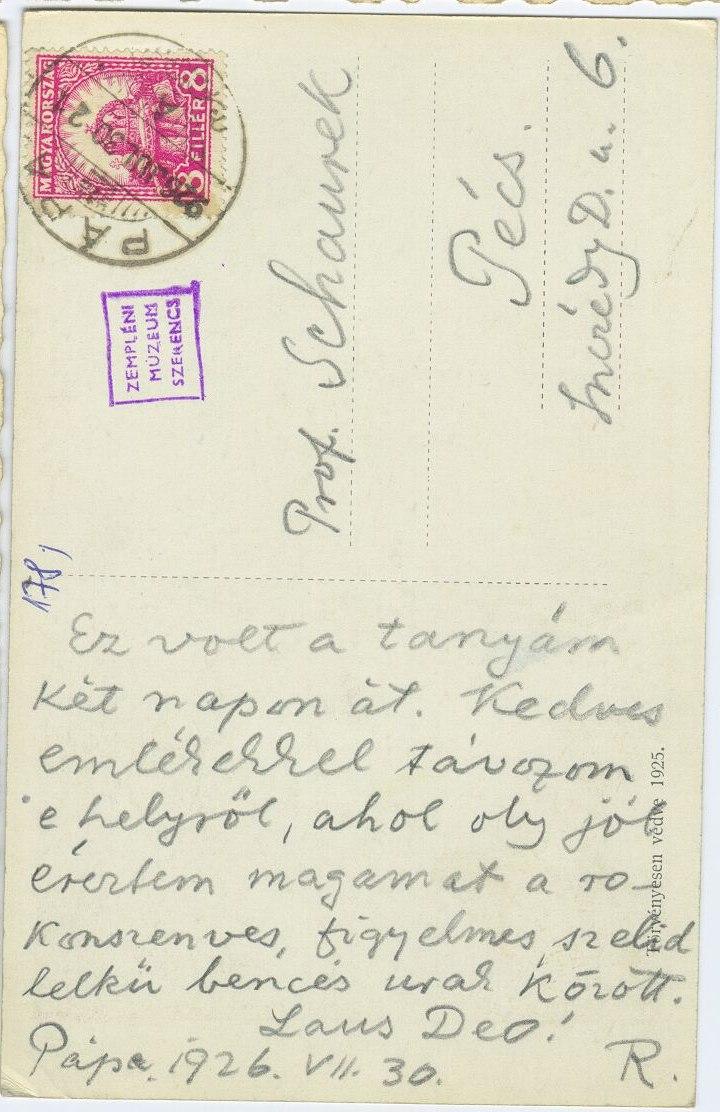 MAGYARORSZÁG
8 FILLÉR 8
PÁPA
926 JUL 30
ZEMPLÉNI
MÚZEUM
SZERENCS
Prof. Schaurek
Pécs.
Incrédy D. u. 6.
178,
Ez volt a tanyám
két napon át. Kedves
emlékekkel távozom
e helyről, ahol oly jól
éreztem magamat a ro-
konszenves, figyelmes, szelid
lelkü bencés urak között.
Laus Deo!
Pápa. 1926. VII. 30. R.
Törvényesen védve 1925.